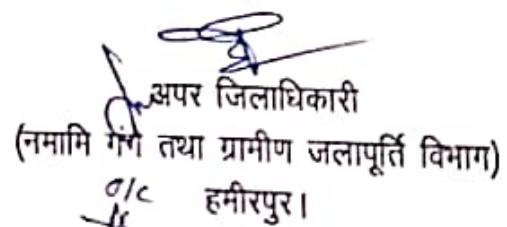 अपर जिलाधिकारी
(नमामि गंगे तथा ग्रामीण जलापूर्ति विभाग)
o/c हमीरपुर।